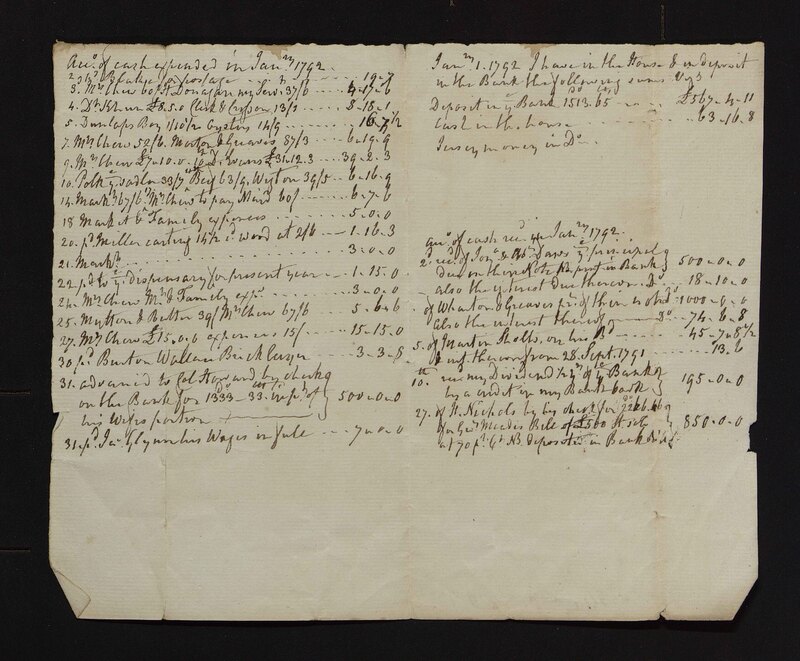 Acct. of cash expended in Jany. 1792
postage 19-7
3. Mrs Chew 60/. Donagan my Serv. 37/6 4-17-6
4. Dr. Kuhn £8.5.0 Clerk & 13/1 8-18-1
5. Dunlaps Boy 1/10½ Oysters 14/9 16-7½
7. Mrs Chew 52/6. Morton & Greaves 87/3 6-19-9
9. Mrs Chew £7-10.0. Evans £31.12.3 39-2-3
10. Polk ye. sadler 33/7 63/9, 39/5 6-16-9
14. Markt. 67/6 Mrs Chew to pay Maid 60/ 6-7-6
18 Market & Family expences 5-0-0
20. pd. Miller carting 14½ cd. wood at 2/6 1-16-3
21. Markt. 3-0-0
22. pd. to ye. dispensary for present year 1-15-0
24. Mrs Chew Mt. & Family exps. 3-0-0
25. Mutton & Butter 39/ Mrs Chew 67/6 5-6-6
27. Mrs Chew £15,0,0 expences 15/ 15-15-0
30. pd. Burton Wallace Bricklayer 3-3-8
31. advanced to Col. Howard by check
on the Bank for 1333-33 in pt. of
his Wifes portion 500-0-0
31. pd. Jas. Glynn his Wages in full 7-0-0
Jany. 1. 1792 I have in the House & in deposit
in the Bank the following sums Vizt
Deposit in ye. Bank 1513.65 £567-4-11
Cash in the house 63-16-8
Jersey money in Do.
Acct. of cash recd. in Jany. 1792.
2. recd. of Jona. & ye. principal
due on their Note depost. in Bank 500-0-0
also the interest due thereon Do. 18-10-0
of Wharton & Greaves prl. of their note 1000-0-0
also the interest thereof Do. 74-6-8
5. of Martin Holts, on his Bd. 45-7-8½
& int. thereon from 28. Sept. 1791 13-6
10. recd. my Dividend of ye. Bank
by a credit in my Bank book 195-0-0
27. of W. Nichols by his check for 2266.66
for Genl. Meades Bill of £500 Sterlg
at 70 pr. Ct. NB deposited in Bank 850-0-0